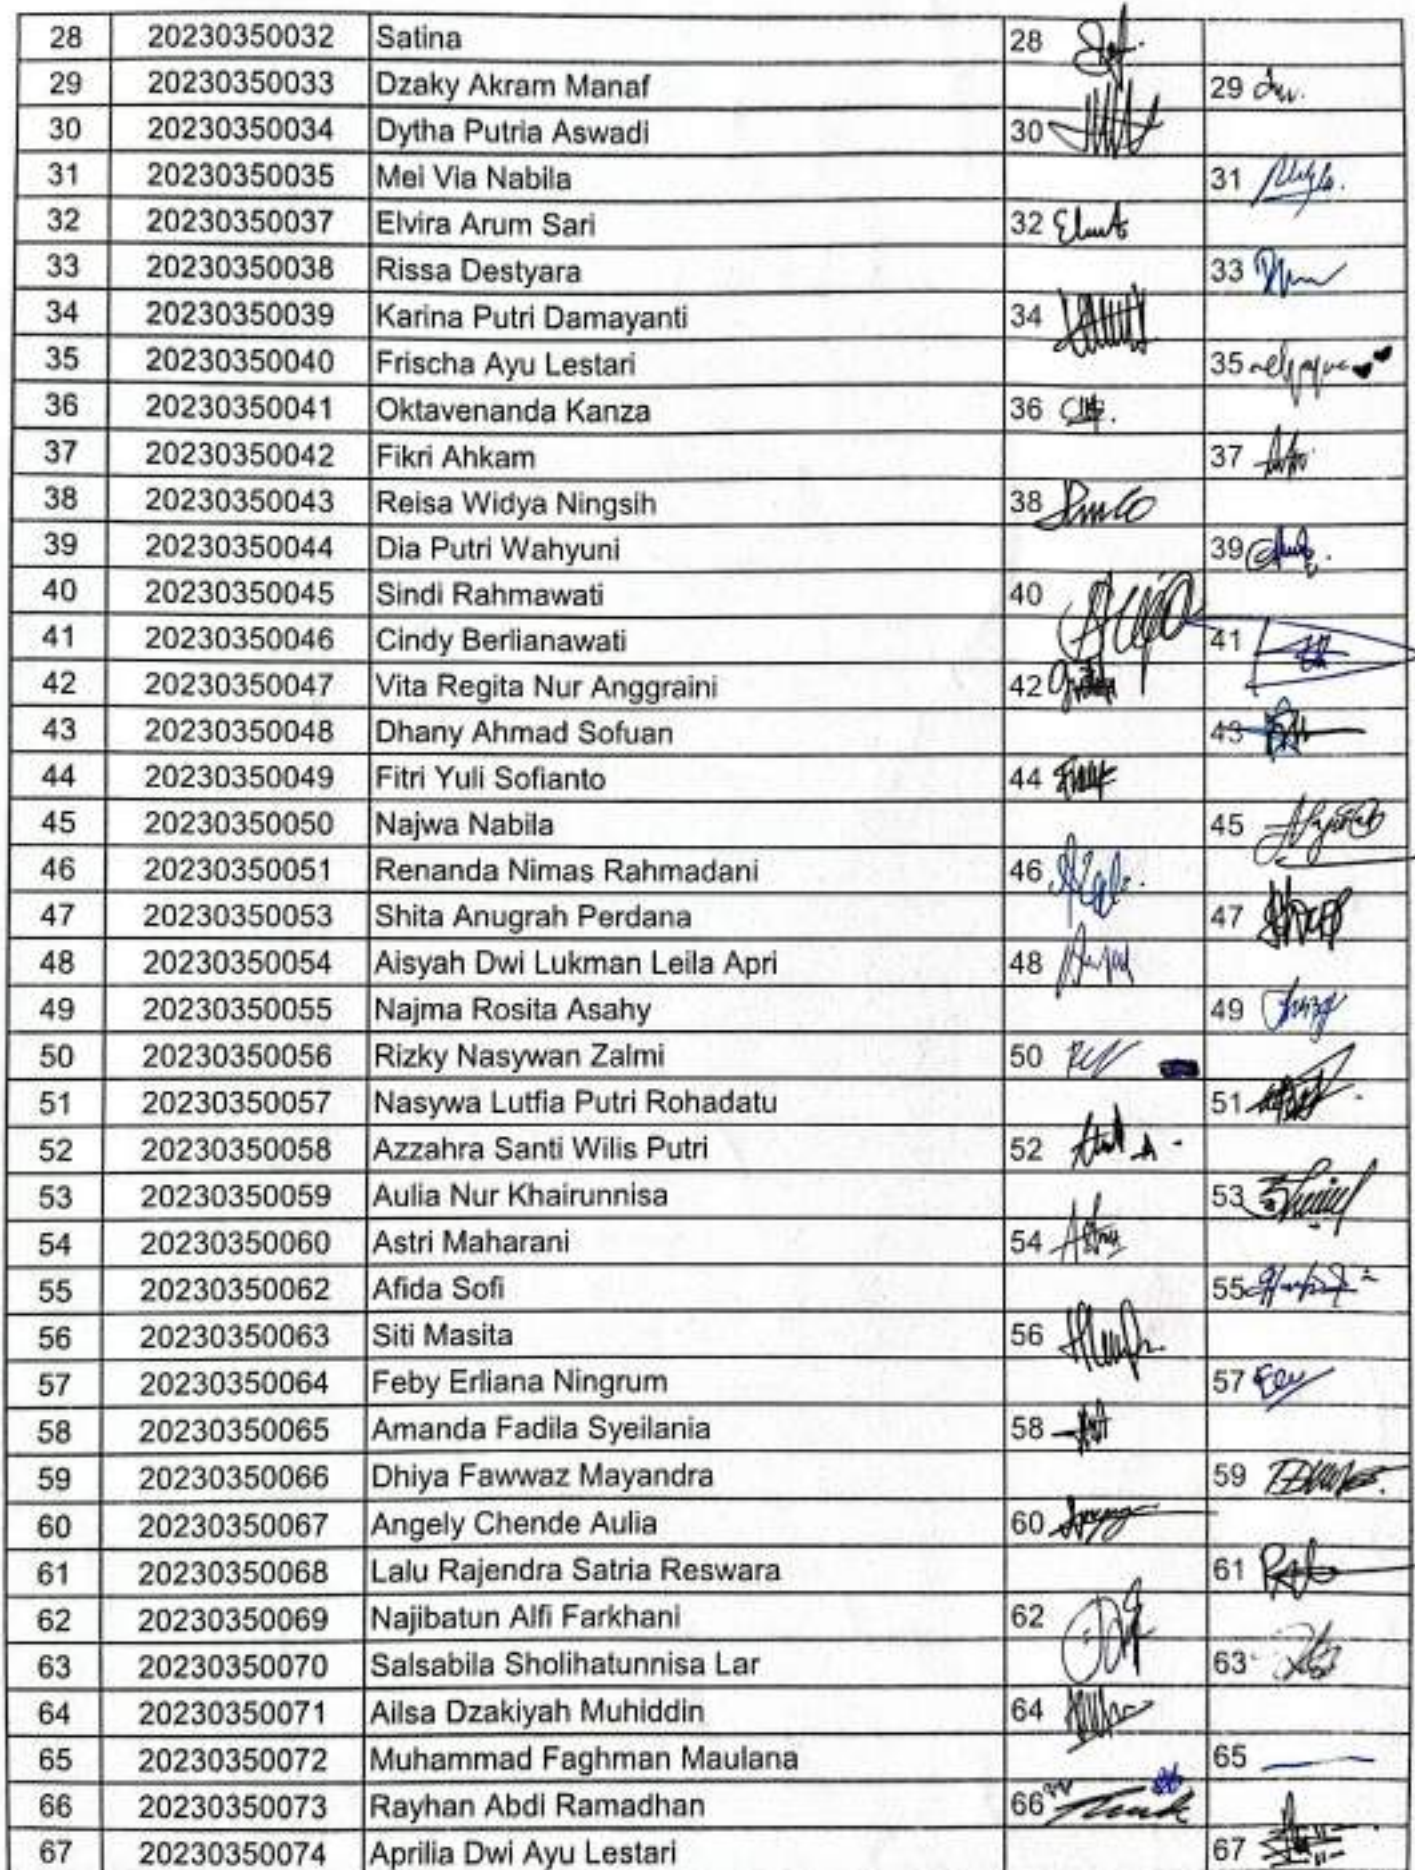 28 20230350032 Satina 28
29 20230350033 Dzaky Akram Manaf 29
30 20230350034 Dytha Putria Aswadi 30
31 20230350035 Mei Via Nabila 31
32 20230350037 Elvira Arum Sari 32
33 20230350038 Rissa Destyara 33
34 20230350039 Karina Putri Damayanti 34
35 20230350040 Frischa Ayu Lestari 35
36 20230350041 Oktavenanda Kanza 36
37 20230350042 Fikri Ahkam 37
38 20230350043 Reisa Widya Ningsih 38
39 20230350044 Dia Putri Wahyuni 39
40 20230350045 Sindi Rahmawati 40
41 20230350046 Cindy Berlianawati 41
42 20230350047 Vita Regita Nur Anggraini 42
43 20230350048 Dhany Ahmad Sofuan 43
44 20230350049 Fitri Yuli Sofianto 44
45 20230350050 Najwa Nabila 45
46 20230350051 Renanda Nimas Rahmadani 46
47 20230350053 Shita Anugrah Perdana 47
48 20230350054 Aisyah Dwi Lukman Leila Apri 48
49 20230350055 Najma Rosita Asahy 49
50 20230350056 Rizky Nasywan Zalmi 50
51 20230350057 Nasywa Lutfia Putri Rohadatu 51
52 20230350058 Azzahra Santi Wilis Putri 52
53 20230350059 Aulia Nur Khairunnisa 53
54 20230350060 Astri Maharani 54
55 20230350062 Afida Sofi 55
56 20230350063 Siti Masita 56
57 20230350064 Feby Erliana Ningrum 57
58 20230350065 Amanda Fadila Syeilania 58
59 20230350066 Dhiya Fawwaz Mayandra 59
60 20230350067 Angely Chende Aulia 60
61 20230350068 Lalu Rajendra Satria Reswara 61
62 20230350069 Najibatun Alfi Farkhani 62
63 20230350070 Salsabila Sholihatunnisa Lar 63
64 20230350071 Ailsa Dzakiyah Muhiddin 64
65 20230350072 Muhammad Faghman Maulana 65
66 20230350073 Rayhan Abdi Ramadhan 66
67 20230350074 Aprilia Dwi Ayu Lestari 67